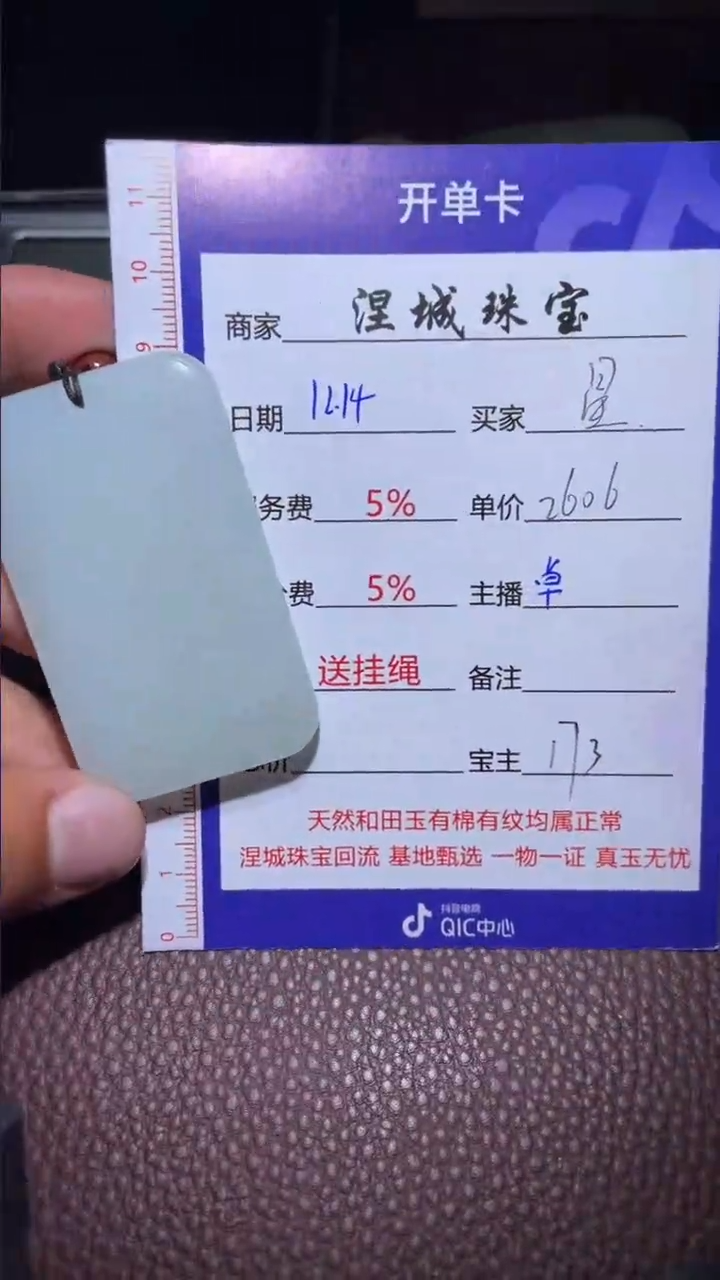 开单卡
商家 涅城珠宝
日期 12.14 买家 星
务费 5% 单价 2606
费 5% 主播 卓
送挂绳 备注
宝主 173
天然和田玉有棉有纹均属正常
涅城珠宝回流 基地甄选 一物一证 真玉无忧
抖音电商
QIC中心
11
10
9
2
1
0